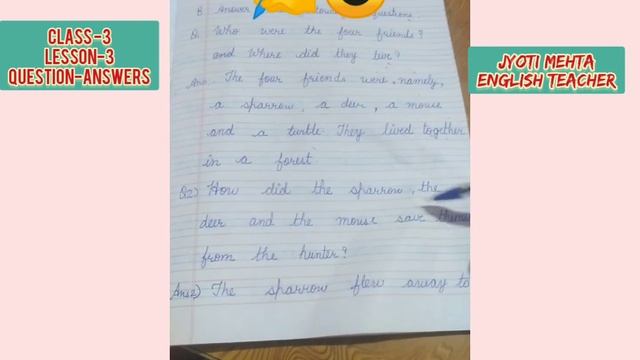 CLASS-3
LESSON-3
QUESTION-ANSWERS
JYOTI MEHTA
ENGLISH TEACHER
B Answer questions
Q. Who were the four friends?
and Where did they live?
Ans. The four friends were, namely,
a sparrow, a deer, a mouse
and a turtle. They lived together
in a forest
Q2) How did the sparrow, the
deer and the mouse save
from the hunter?
Ans2) The sparrow flew away to